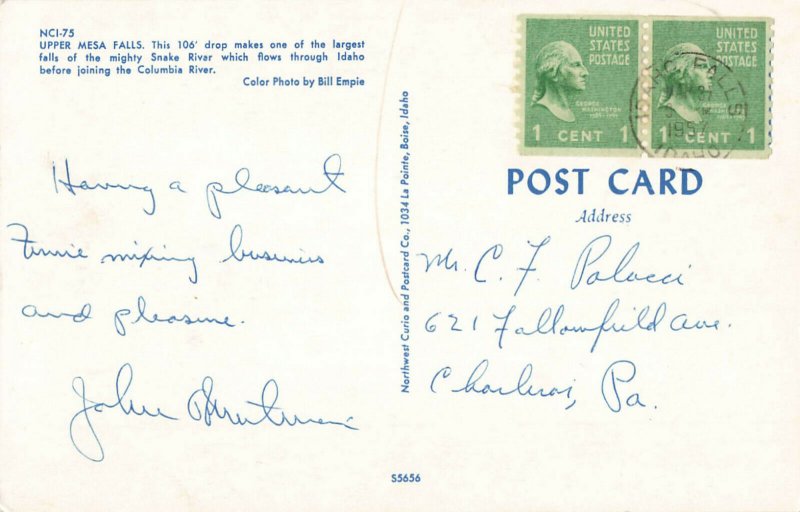 NCI-75
UPPER MESA FALLS. This 106' drop makes one of the largest
falls of the mighty Snake Rivar which flows through Idaho
before joining the Columbia River.
Color Photo by Bill Empie
Having a pleasant
time mixing business
and pleasure.
John
Northwest Curio and Postcard Co., 1034 La Pointe, Boise, Idaho
S5656
UNITED
STATES
POSTAGE
GEORGE
WASHINGTON
1 CENT 1
UNITED
STATES
POSTAGE
GEORGE
WASHINGTON
1 CENT 1
IDAHO FALLS
1957
IDAHO
POST CARD
Address
Mr. C. F. Palucci
621 Fallowfield Ave.
Charleroi, Pa.